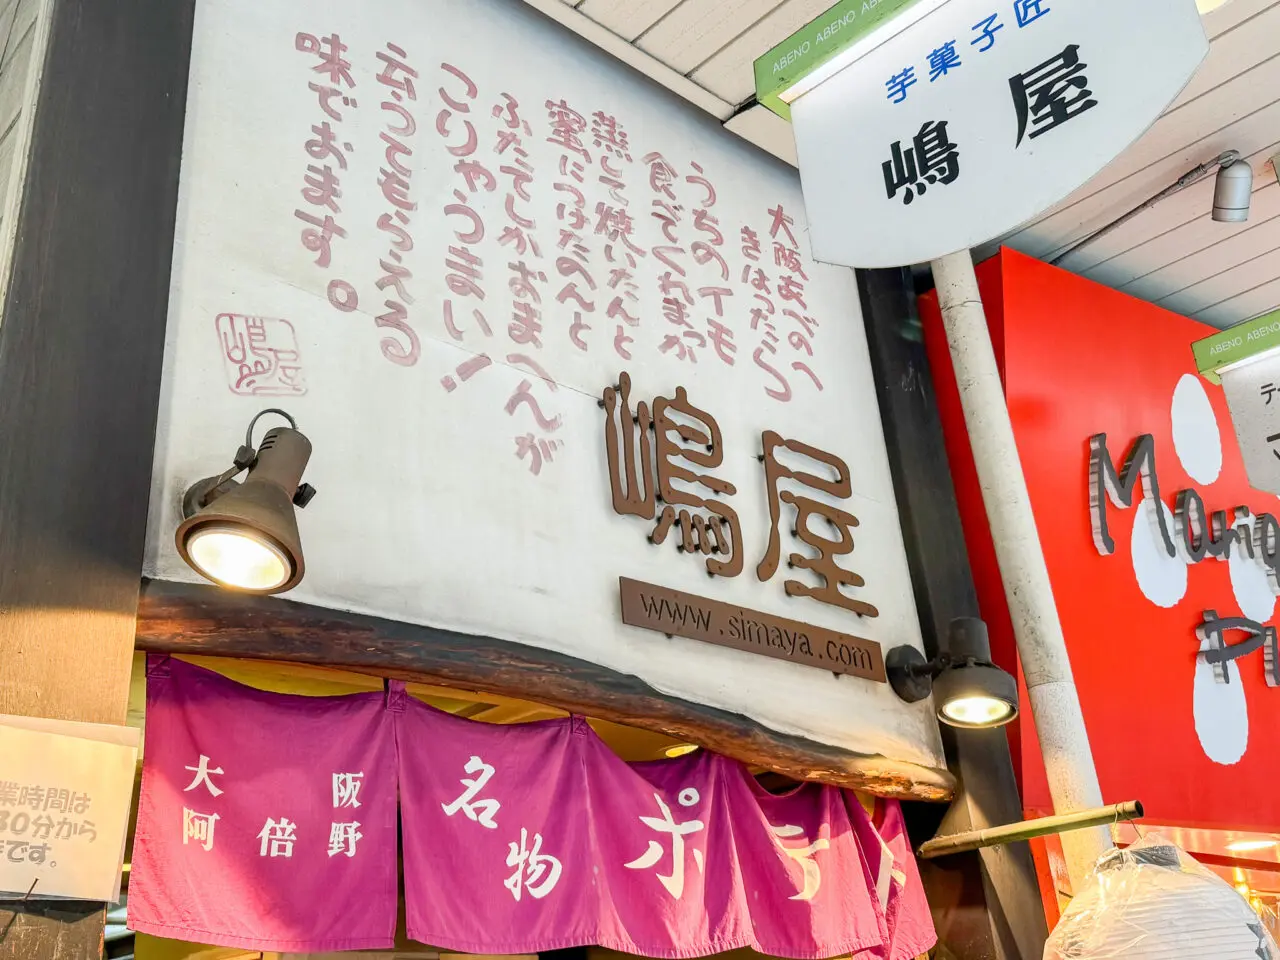 大阪あべのへ
きはったら
うちのイモ
食べてくれまっか
蒸して焼いたんと
蜜につけたのんと
ふたてしかおまへんが
こりゃうまい!
云ってもらえる
味でおます。
嶋屋
www.simaya.com
ABENO ABENO ABENO
芋菓子匠
嶋屋
ABENO ABENO
大阪
阿倍野
名物
ポテ
業時間は
30分から
です。